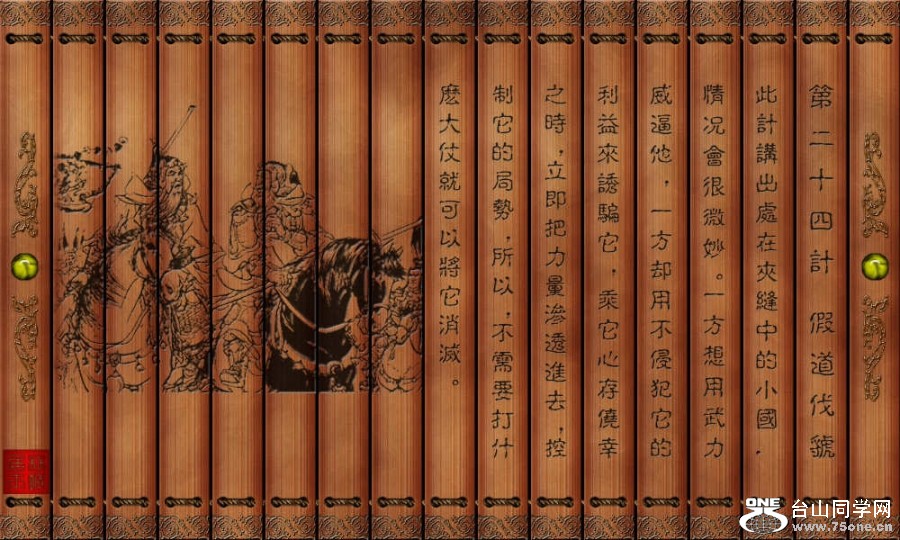 第二十四計 假道伐虢
此計講出處在夾縫中的小國，
情况會很微妙。一方想用武力
威逼他，一方却用不侵犯它的
利益來誘騙它，乘它心存僥幸
之時，立即把力量滲透進去，控
制它的局勢，所以，不需要打什
麽大仗就可以將它消滅。
ONE
台山同学网
www.75one.cn